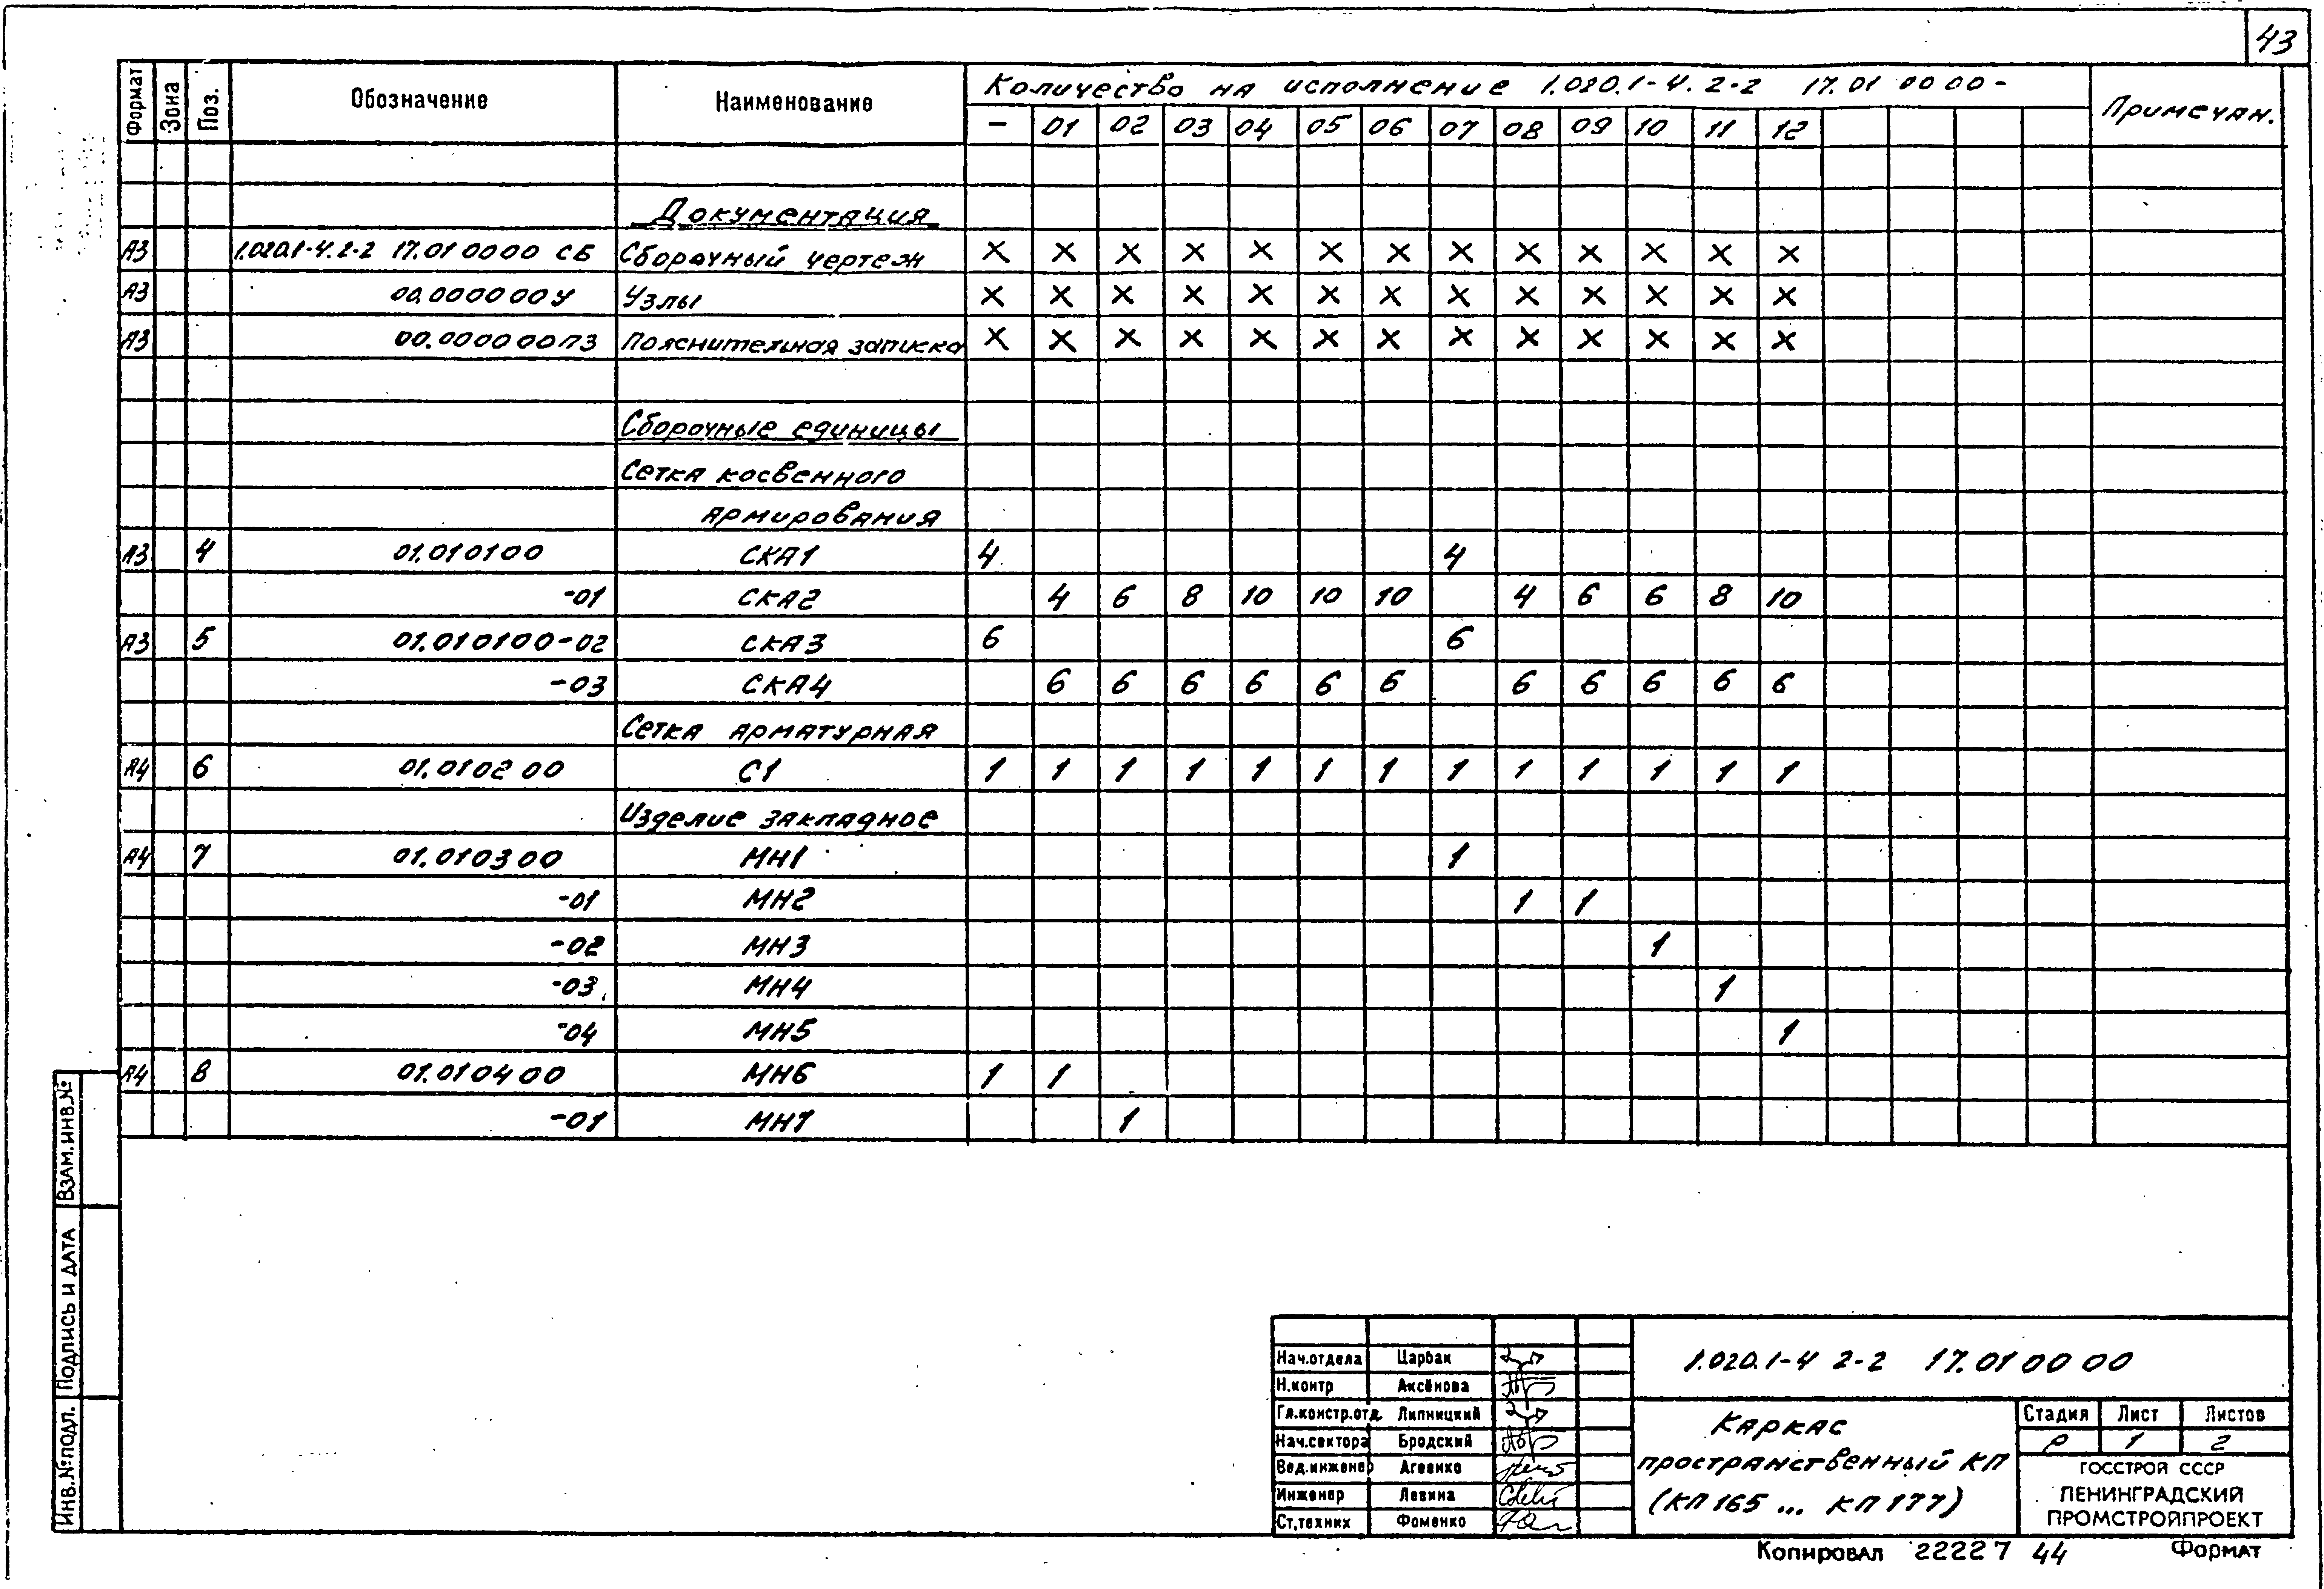 43
Формат Зона Поз. Обозначение Наименование Количество на исполнение 1.020.1-4.2-2 17.01 00 00- Примечан.
- 01 02 03 04 05 06 07 08 09 10 11 12
Документация
А3 1.020.1-4.2-2 17.01 0000 СБ Сборочный чертеж × × × × × × × × × × × × ×
А3 00.0000 00У Узлы × × × × × × × × × × × × ×
А3 00.0000 00ПЗ Пояснительная записка × × × × × × × × × × × × ×
Сборочные единицы
Сетка косвенного
армирования
А3 4 01.010100 СКА1 4 4
-01 СКА2 4 6 8 10 10 10 4 6 6 8 10
А3 5 01.010100-02 СКА3 6 6
-03 СКА4 6 6 6 6 6 6 6 6 6 6 6
Сетка арматурная
А4 6 01.0102 00 С1 1 1 1 1 1 1 1 1 1 1 1 1 1
Изделие закладное
А4 7 01.0103 00 МН1 1
-01 МН2 1 1
-02 МН3 1
-03 МН4 1
-04 МН5 1
А4 8 01.0104 00 МН6 1 1
-01 МН7 1
Взам.инв.№
Подпись и дата
Инв.№ подл.
Нач.отдела Царбак
Н.контр Аксёнова
Гл.констр.отд. Липницкий
Нач.сектора Бродский
Вед.инженер Агеенко
Инженер Левина
Ст.техник Фоменко
1.020.1-4 2-2 17.01 00 00
Каркас
пространственный КП
(КП 165 ... КП 177)
Стадия Лист Листов
Р 1 2
ГОССТРОЙ СССР
ЛЕНИНГРАДСКИЙ
ПРОМСТРОЙПРОЕКТ
Копировал 22227 44 Формат